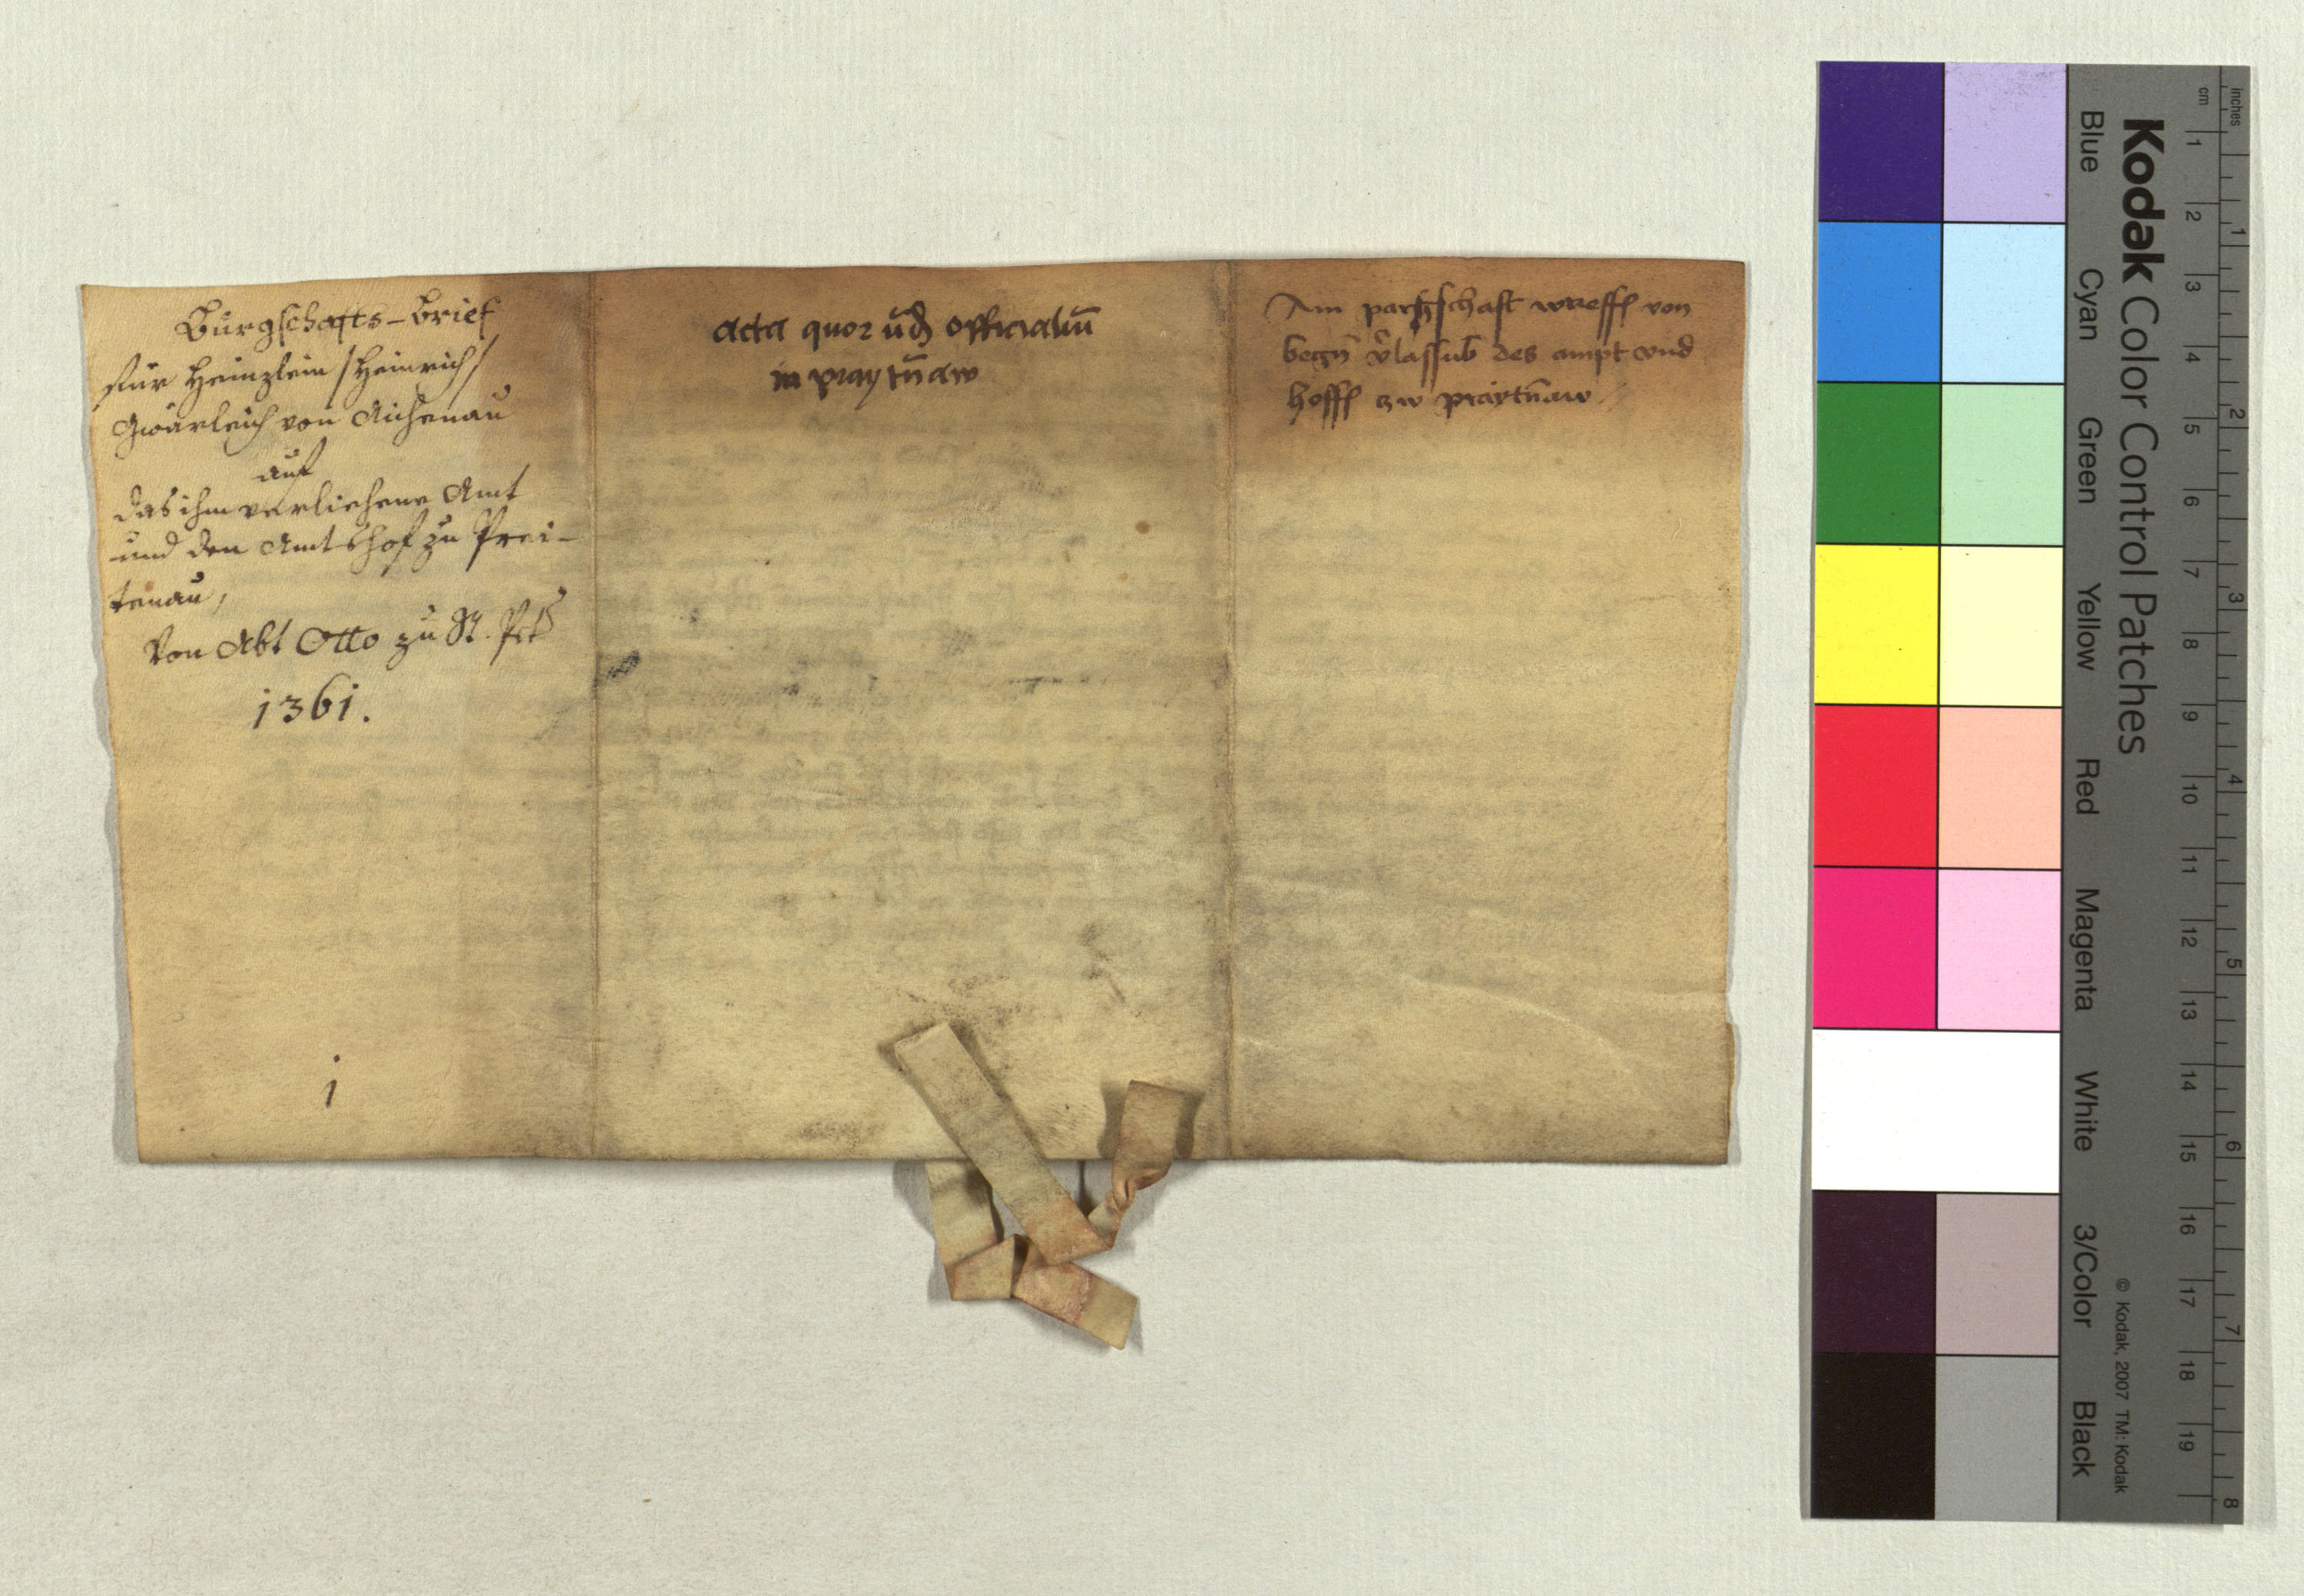 Burgschafts-Brief
für Heinzlein /Heinrich/
Gwärleich von Aichenau
auf
das ihm verliehene Amt
und den Amtshof zu Prei-
tenau,
Von Abt Otto zu St. Pet
1361.
1
acta quor officialiū
in praytn̄aw
Ain von
des ampt vnd
hofff zw praytn̄aw
Kodak Color Control Patches
Blue Cyan Green Yellow Red Magenta White 3/Color Black
© Kodak, 2007 TM: Kodak
cm 1 2 3 4 5 6 7 8 9 10 11 12 13 14 15 16 17 18 19
inches 1 2 3 4 5 6 7 8